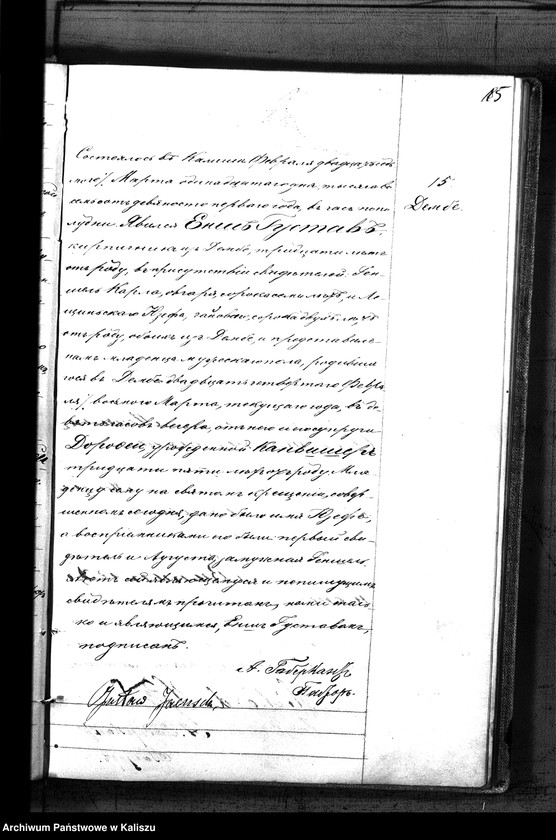 185
15
Дембе
Состоялось въ Калишѣ Февраля двадцать седь
маго/ Марта одинадцатаго дня, тысяча во
семьсотъ девяносто перваго года, въ часъ попо
лудни. Явился Еншъ Густавъ,
кирпичникъ изъ Дембе, тридцати лѣтъ
отъ роду, въ присутствіи свидѣтелей
Карла, овчаря, сорока семи лѣтъ, и Ло
щиньскаго Юзефа, гайоваго, сорока двухъ лѣтъ
отъ роду, обоихъ изъ Дембе, и предъставилъ
намъ младенца мужескаго пола, родивша
гося въ Дембе двадцать четвертаго Февра
ля/ восьмаго Марта, текущаго года, въ де
вять часовъ вечера, отъ него и его супруги
Доротеи, урожденной
тридцати пяти лѣтъ отъ роду. Мла
денцу сему на святомъ крещеніи, совер
шенномъ сегодня, дано было имя Юзефъ,
а воспріемниками его были первый сви
дѣтель и Августа, замужная Геншель.
Актъ сей являющемуся и
свидѣтелямъ прочитанъ, нами толь
ко и являющимся, Еншъ Густавомъ,
подписанъ.
А. Габеркантъ
Пасторъ.
Gustaw Jaensch,
Archiwum Państwowe w Kaliszu